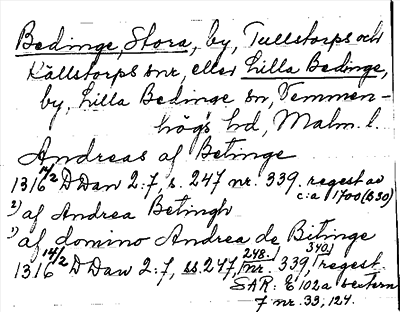 Bedinge, Stora, by, Tullstorps och
Källstorps snr, eller Lilla Bedinge,
by, Lilla Bedinge sn, Vemmen-
högs hd, Malm. l.
Andreas af Betinge
1316 14/2 D Dan 2:7, s. 247 nr. 339. regest av
c:a 1700 (B30)
2) af Andrea Betingh
1) af domino Andrea de Bitinge
1316 14/2 D Dan 2:7, ss. 247, 248. nr. 339, 340. regest
SAR: E 102a
7 nr. 33; 124.